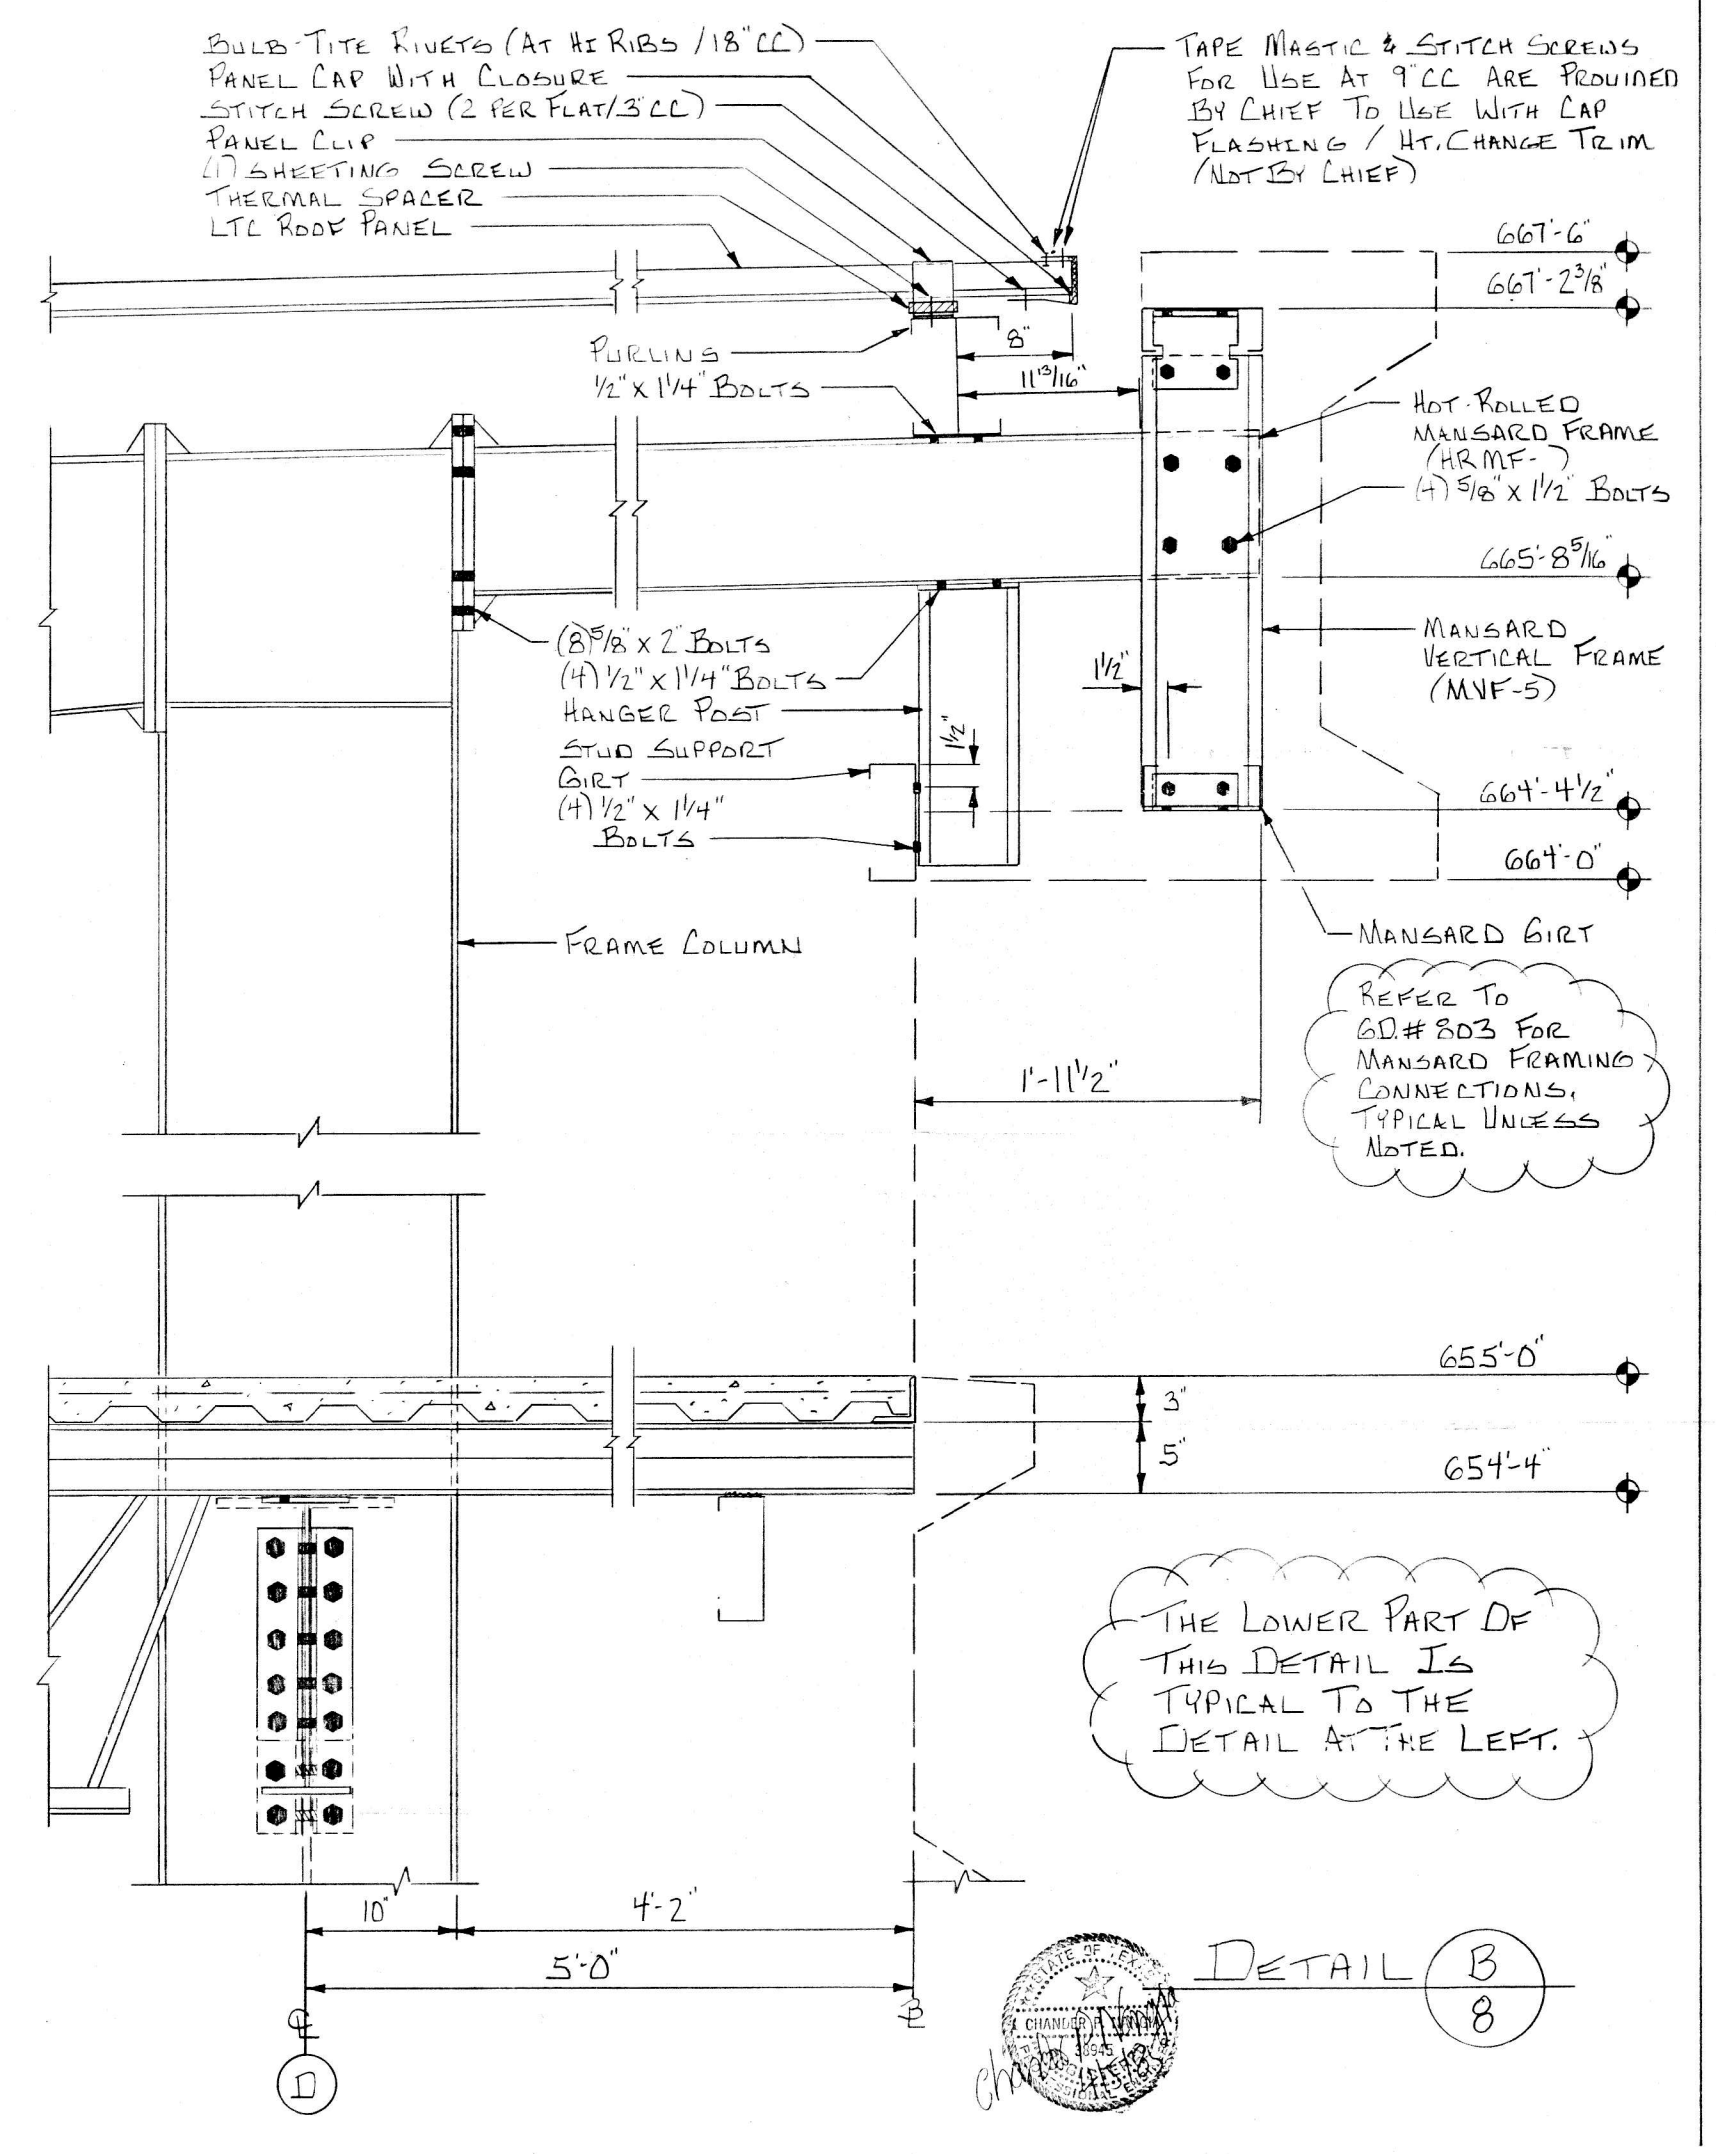 BULB-TITE RIVETS (AT HI RIBS /18"CC)
PANEL CAP WITH CLOSURE
STITCH SCREW (2 PER FLAT/3"CC)
PANEL CLIP
(1) SHEETING SCREW
THERMAL SPACER
LTC ROOF PANEL
TAPE MASTIC & STITCH SCREWS
FOR USE AT 9"CC ARE PROVIDED
BY CHIEF TO USE WITH CAP
FLASHING / HT. CHANGE TRIM
(NOT BY CHIEF)
667'-6"
667'-2 3/8"
PURLINS
1/2" X 1 1/4" BOLTS
8"
11 13/16"
HOT-ROLLED
MANSARD FRAME
(HRMF- )
(4) 5/8" X 1 1/2" BOLTS
665'-8 5/16"
(8) 5/8" X 2" BOLTS
(4) 1/2" X 1 1/4" BOLTS
HANGER POST
STUD SUPPORT
GIRT
(4) 1/2" X 1 1/4"
BOLTS
1 1/2"
1 1/2"
MANSARD
VERTICAL FRAME
(MVF-5)
664'-4 1/2"
664'-0"
FRAME COLUMN
MANSARD GIRT
REFER TO
GD.# 803 FOR
MANSARD FRAMING
CONNECTIONS,
TYPICAL UNLESS
NOTED.
1'-11 1/2"
655'-0"
3"
5"
654'-4"
THE LOWER PART OF
THIS DETAIL IS
TYPICAL TO THE
DETAIL AT THE LEFT.
10"
4'-2"
5'-0"
D
DETAIL B
8
STATE OF TEXAS
CHANDER P.
38945